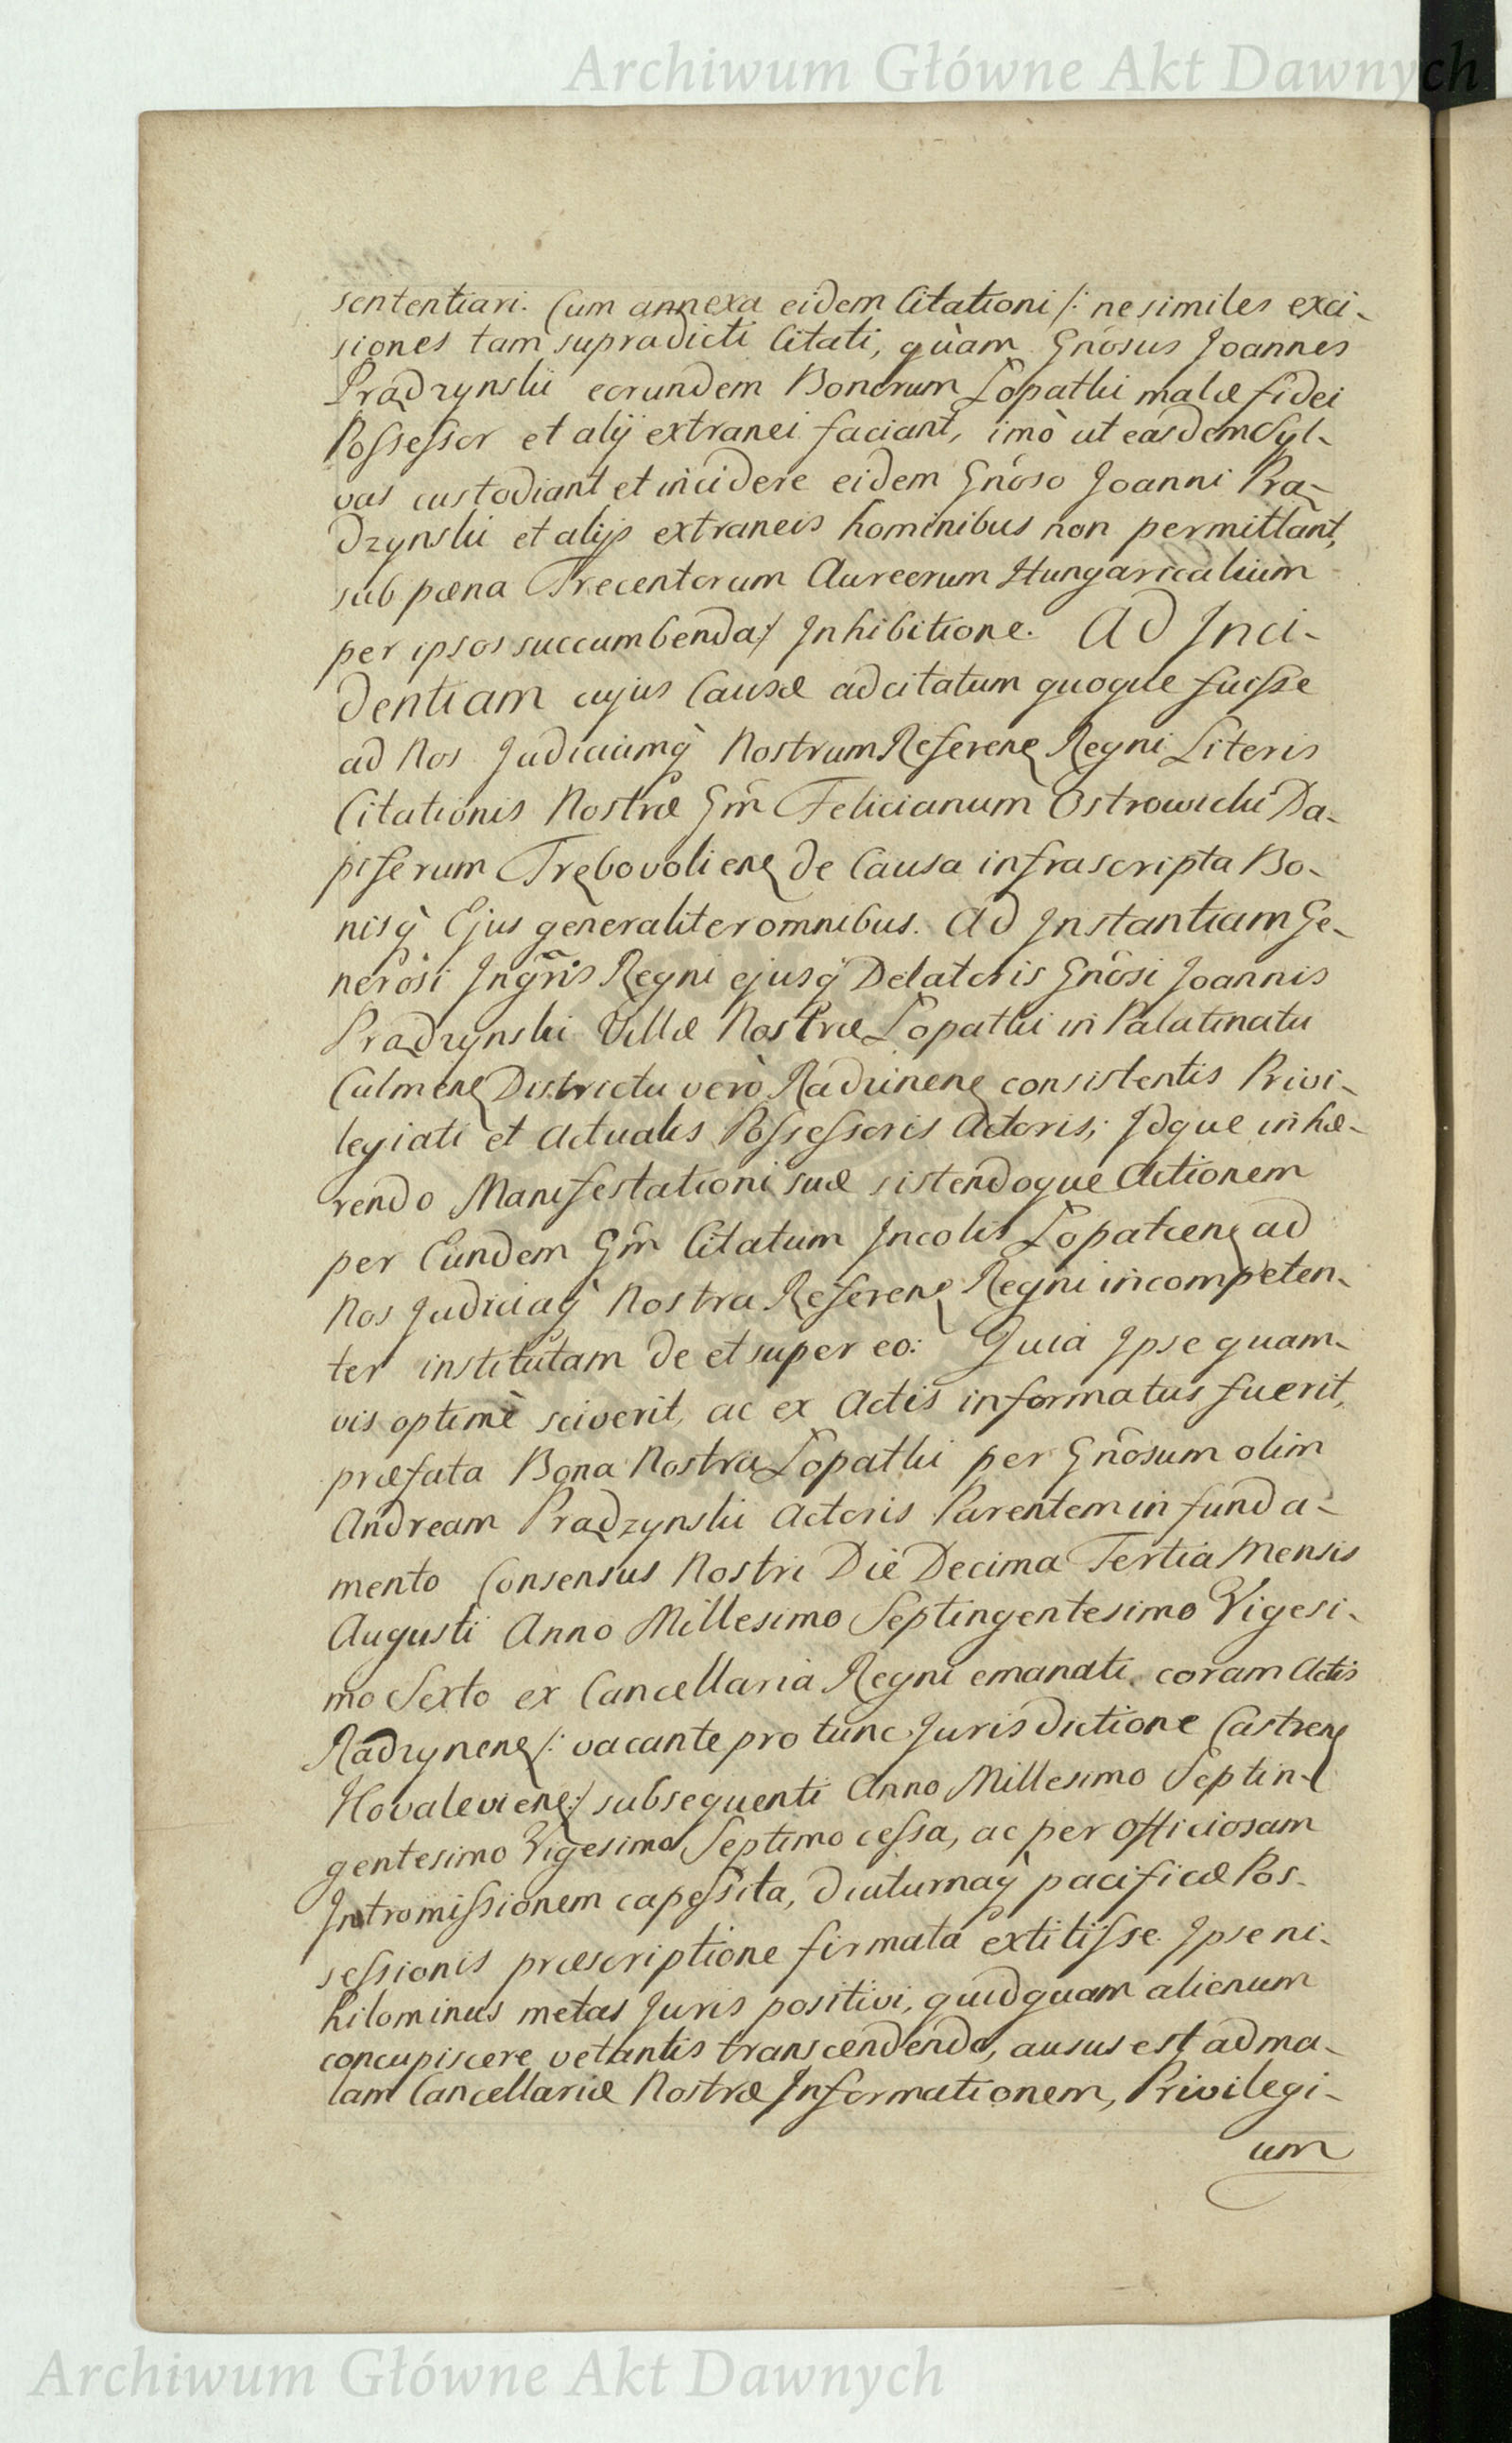 Archiwum Główne Akt Dawnych
sententiari. Cum annexa eidem Citationi /: ne similes exci-
siones tam supradicti Citati, quàm Gnosus Joannes
Prądzynski eorundem Bonorum Łopatki malæ fidei
Possessor et alij extranei faciant, imò ut easdem Syl-
vas custodiant et incidere eidem Gnoso Joanni Prą-
dzynski et alijs extraneis hominibus non permittant,
sub pœna Trecentorum Aureorum Hungaricalium
per ipsos succumbenda:/ Inhibitione. Ad Inci-
dentiam cujus Causæ adcitatum quoque fuisse
ad Nos Judiciumq̀ Nostrum Referenę Regni Literis
Citationis Nostræ Gm̃ Felicianum Ostrowicki Da-
piferum Trębovolienę de Causa infrascripta Bo-
nisq̀ Ejus generaliter omnibus. Ad Instantiam Ge-
nerosi Ingr̃is Regni ejusq̀ Delatoris Gnosi Joannis
Prądzynski Villæ Nostræ Łopatki in Palatinatu
Culmenę Districtu verò Radzinenę consistentis Privi-
legiati et Actualis Possessoris Actoris; Idque inhæ-
rendo Manifestationi suæ sistendoque Actionem
per Eundem Gm̃ Citatum Incolis Łopatcenę ad
Nos Judiciaq̀ Nostra Referenę Regni incompeten-
ter institutam de et super eo: Quia Ipse quam-
vis optimè sciverit, ac ex Actis informatus fuerit,
præfata Bona Nostra Łopatki per Gnosum olim
Andream Prądzynski Actoris Parentem in funda-
mento Consensus Nostri Die Decima Tertia Mensis
Augusti Anno Millesimo Septingentesimo Vigesi-
mo Sexto ex Cancellaria Regni emanati coram Actis
Radzynenę /: vacante pro tunc Jurisdictione Castrenę
Kovalevienę:/ subsequenti Anno Millesimo Septin-
gentesimo Vigesimo Septimo cessa, ac per Officiosam
Intromissionem capessita, diuturnaq̀ pacificæ Pos-
sessionis præscriptione firmata extitisse. Ipse ni-
hilominus metas Juris positivi, quidquam alienum
concupiscere vetantis transcendendo, ausus est ad ma-
lam Cancellariæ Nostræ Informationem, Privilegi-
um
Archiwum Główne Akt Dawnych